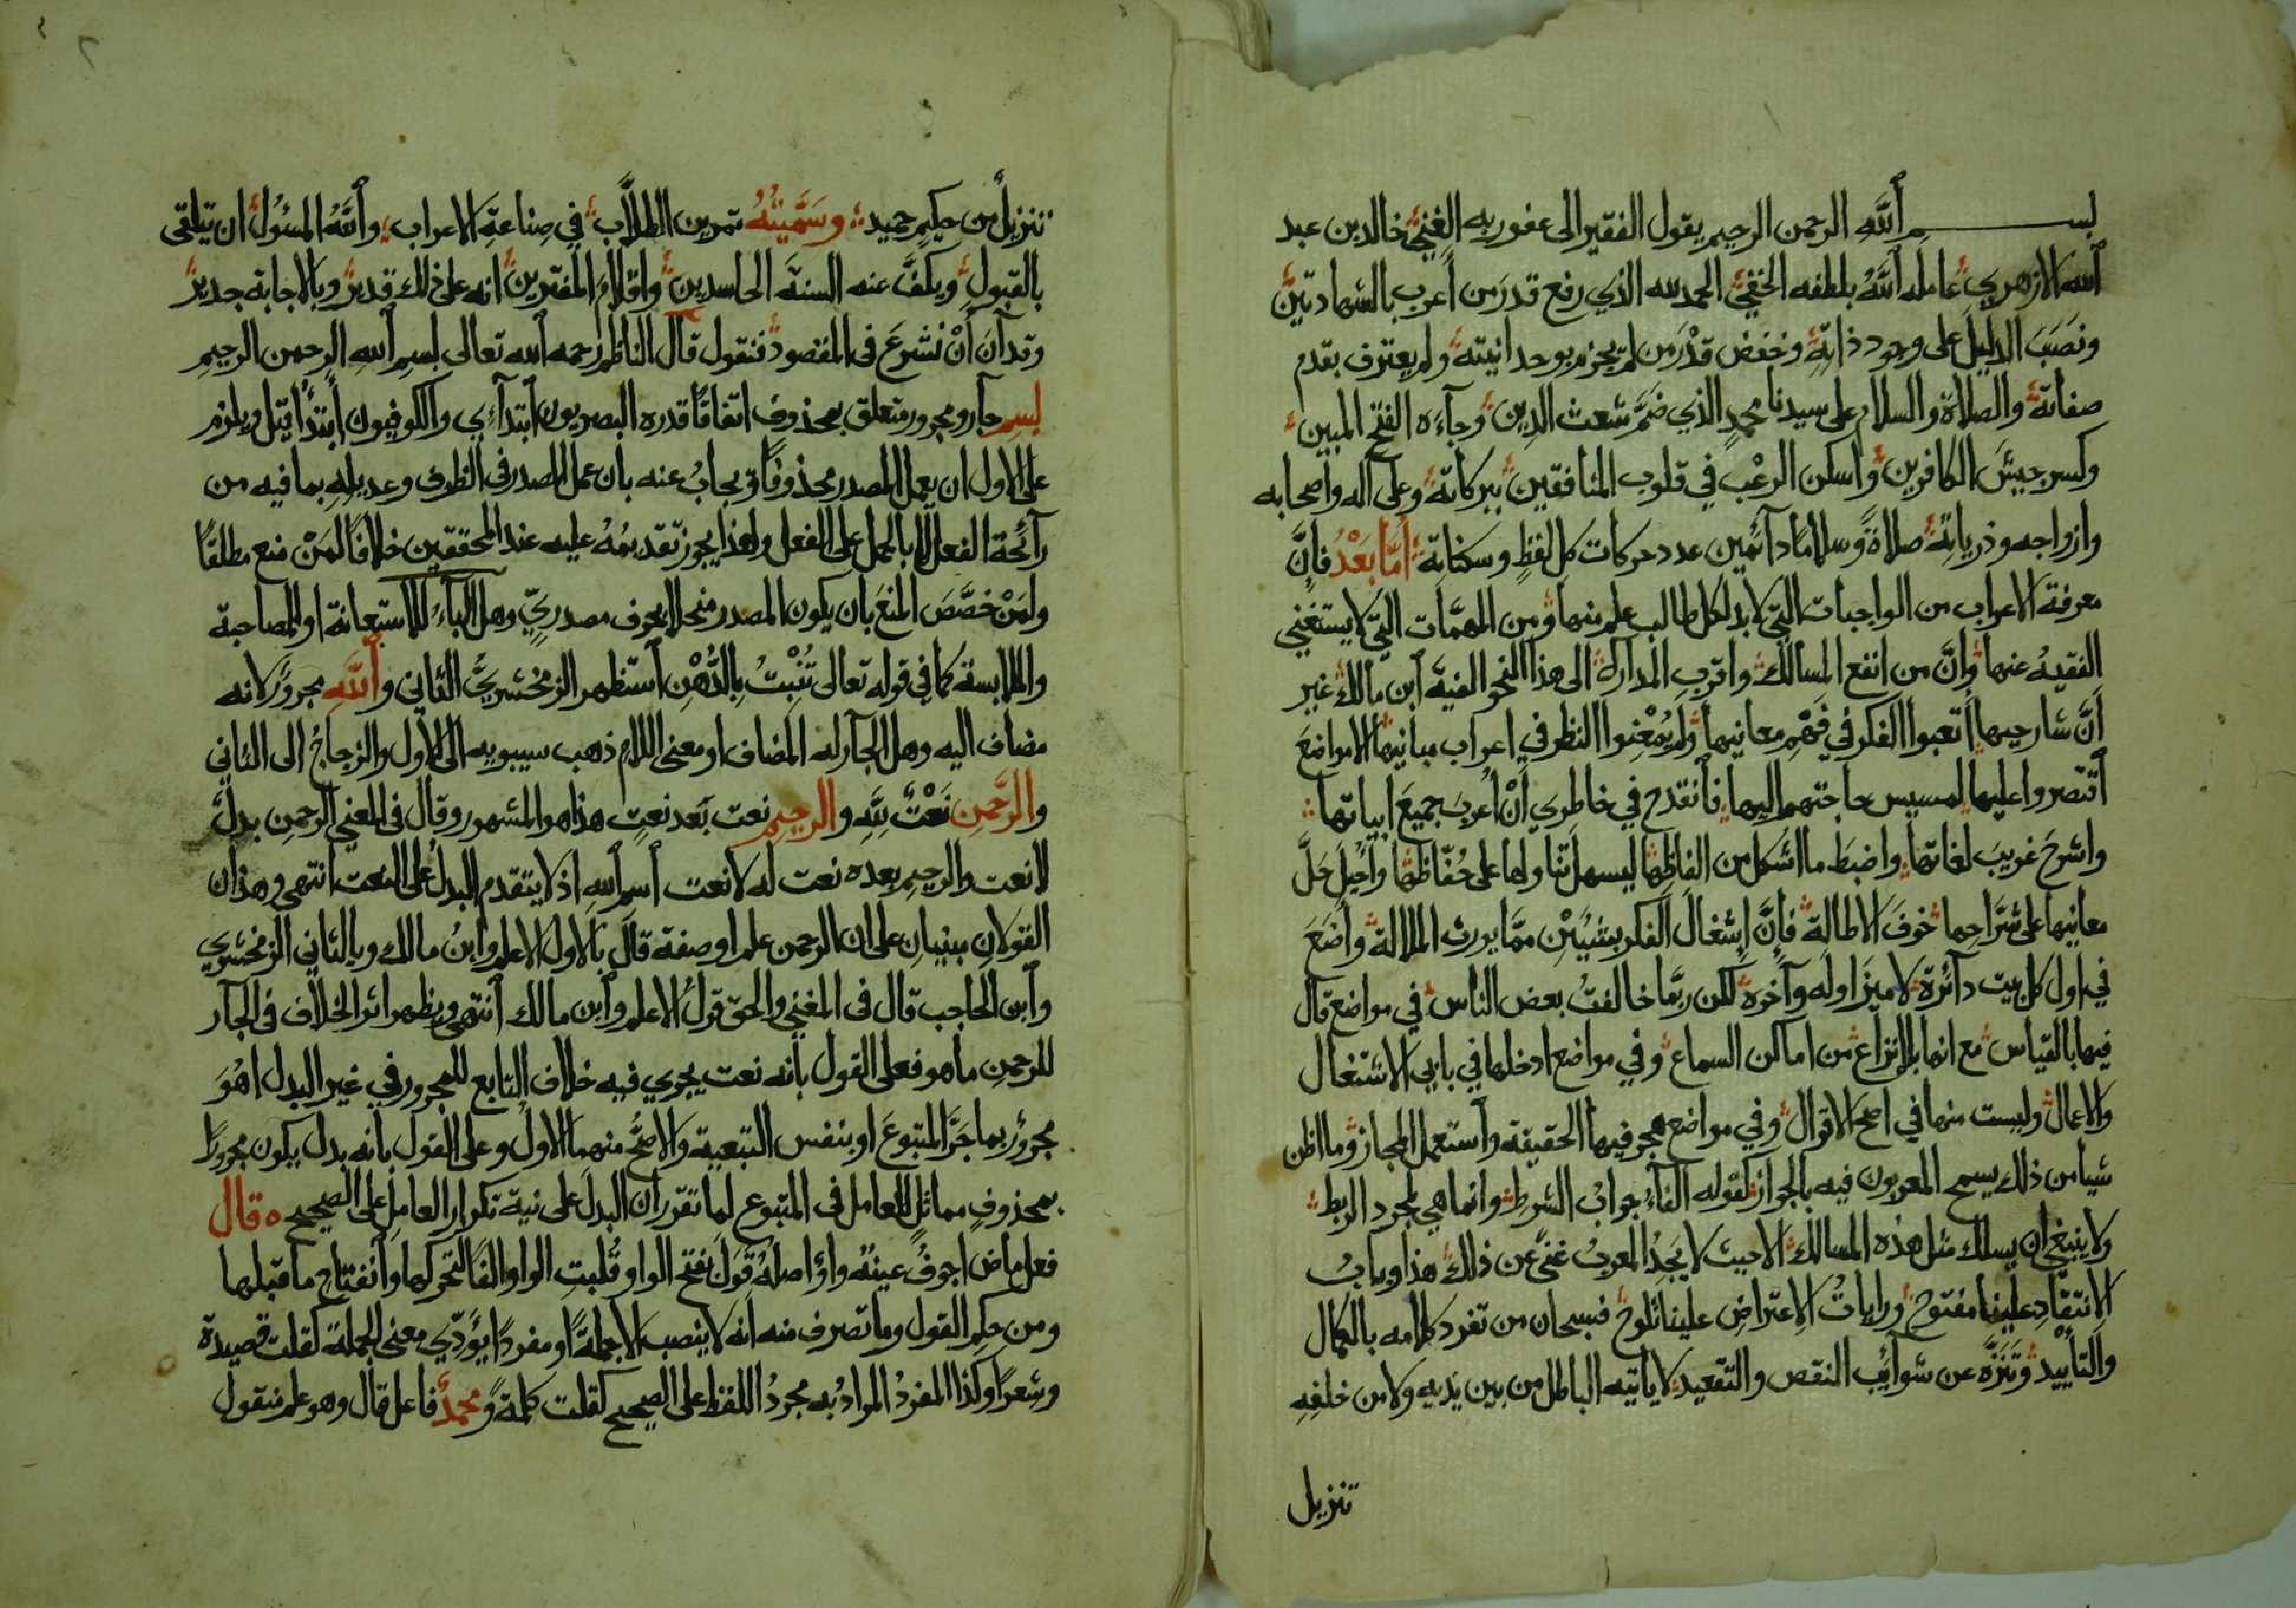 بســـــم ٱللَّهِ الرحمن الرحيم يقول الفقير الى عفو ربه الغنيّ خالد بن عبد
ٱلله الازهري عامله ٱللَّهُ بلطفه الخفيّ الحمد لله الذي رفع قدر من أعرب بالشهادتين
ونصَبَ الدليل على وجود ذاتِهِ وخفض قدْرَ من لم يجزم بوحدانيته ولم يعترف بقدم
صفاته والصلاة والسلام على سيدنا محمدٍ الذي ضمَّ شعث الدين وجآءه الفتح المبين
وكسر جيشَ الكافرين وأسكن الرعْب في قلوب المنافقين ببركاته وعلى آله واصحابه
وازواجه وذرياته صلاةً وسلامًا دآئمين عدد حركات كل لفظٍ وسكناته أمّا بَعْدُ فإنَّ
معرفة الاعراب من الواجبات التي لابد لكل طالب علم منها ومن المهمَّات التي لا يستغني
الفقيهُ عنها وإنَّ من انفع المسالك واقرب المدارك الى هذا النحو الفيَّة ٱبن مالك غير
أنَّ شارحيها أتعبوا الفكر في فَهْمِ معانيها ولم يُمْعِنوا النظر في اعراب مبانيها الا مواضعَ
ٱقتصروا عليها لمسيس حاجتهم اليها فٱنقدح في خاطري أنْ أُعربَ جميعَ ابياتها
واشرحَ غريبَ لغاتها واضبَط ما اشكل من الفاظها ليسهل تناولها على حُفّاظها وأُحيلَ حَلَّ
معانيها على شرَّاحها خوفَ الاطالة فإنَّ إشغالَ الفكر بشيئين ممَّا يورث الملالة واضَعَ
في اول كل بيت دآئرة لاميزَ اوله وآخره لكن ربَّما خالفتُ بعض الناس في مواضع قال
فيها بالقياس مع انها بلا نزاع من اماكن السماع وفي مواضع ادخلها في بابي الاشتغال
والاعمال وليست منها في اصح الاقوال وفي مواضع هجر فيها الحقيقة وٱستعمل المجاز وما اظن
شيا من ذلك يسمح المعربون فيه بالجواز كقوله الفآء جوابُ الشرط وانما هي لمجرد الربط
ولا ينبغي ان يسلك مثل هذه المسالك الا حيث لا يَجدُ المعربُ غنىً عن ذلك هذا وبابُ
الانتقاد علينا مفتوح ورايات الاعتراض علينا تلوح فسبحان من تفرد كلامه بالكمال
والتأييد وتَنَزَّه عن شوآئب النقص والتقعيد لا ياتيه الباطل من بين يديه ولا من خلفِهِ
تنزيل
تنزيلٌ من حكيم حميد وسَمَّيتُهُ تمرين الطلّاب في صناعةِ الاعراب وٱللَّهُ المسئول ان يتلقى
بالقبول ويكفَّ عنه السنةَ الحاسدين واقلام المفترين انه على ذلك قدير وبالاجابة جدير
وقد آنَ أنْ نشرعَ فى المقصود فنقول قال الناظم رحمه ٱلله تعالى بسم ٱلله الرحمن الرحيم
بسم جآر ومجرور متعلق بمحذوف اتفاقًا قدره البصريون ٱبتدآءي والكوفيون أبتدأ قيل ويلزم
على الاول ان يعمل المصدر محذوفًا ويجابُ عنه بان عمل المصدر فى الظرف وعديله بما فيه من
رآئحة الفعل لا بالحمل على الفعل ولهذا يجوز تقديمُهُ عليه عند المحققين خلافًا لمَنْ منع مطلقًا
ولمَنْ خصَّصَ المنعَ بأن يكون المصدر منحلا بحرف مصدريّ وهل البآء للاستعانة او المصاحبة
والملابسة كما في قوله تعالى تُنْبتُ بِالدُّهْنِ ٱستظهر الزمخشريّ الثانى وٱللَّهِ مجرور لانه
مضاف اليه وهل الجآر له المضاف او معنى اللام ذهب سيبويه الى الاول والزجاجُ الى الثاني
والرَّحمنِ نَعْتٌ للَّهِ والرحيم نعت بَعد نعتٍ هذا هو المشهور وقال فى المغني الرحمن بدلٌ
لا نعت والرحيم بعده نعت له لا نعت ٱسم ٱلله اذ لا يتقدم البدل على النعت ٱنتهى وهذان
القولان مبنيان على ان الرحمن علم او صفة قال بالاول الاعلم وابنُ مالك وبالثاني الزمخشري
وٱبن الحاجب قال فى المغني والحق قولُ الاعلم وٱبن مالك ٱنتهى ويظهر اثر الخلاف فى الجآر
للرحمن ما هو فعلى القول بانه نعت يجري فيه خلاف التابع للمجرور في غير البدل اهُوَ
مجرورٌ بما جَرَّ المتبوعَ او بنفس التبعية والاصحُّ منهما الاول وعلى القول بانه بدل يكون مجرورًا
بمحذوفٍ مماثلٍ للعامل فى المتبوع لما تقرر ان البدلَ على نية تكرار العامل على الصحيح ه قال
فعل ماض اجوفُ عينُه واوٌ اصلُهُ قَوَلَ بفتح الواو قُلبت الواو الفًا لتحركها وٱنفتاح ما قبلها
ومن حكم القول وما تصرف منه انه لا ينصب الا جملةً او مفردًا يؤَدّي معنى الجملة كقلت قصيدة
وشعرًا وكذا المفردُ المرادُ به مجردُ اللفظ على الصحيح كقلت كلمةً ومحمدٌ فاعل قال وهو علم منقول